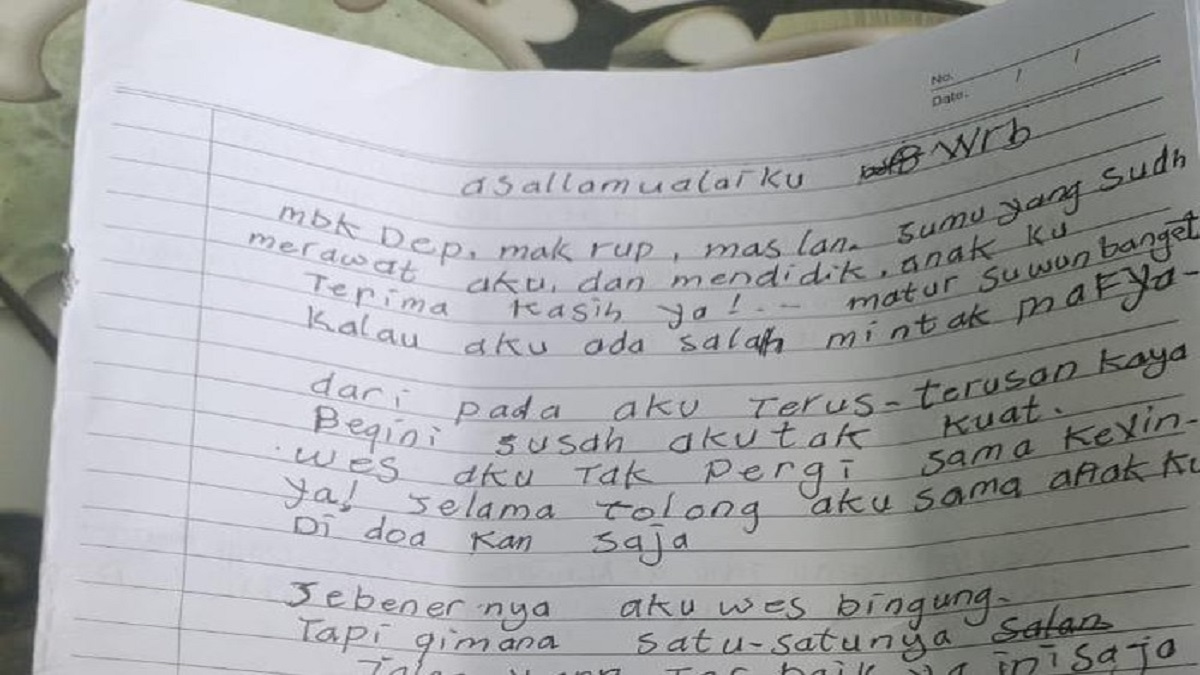 No. / /
Date.
asallamualaiku Wrb
mbk Dep, mak rup, mas lan. sumu yang sudh
merawat aku, dan mendidik, anak ku
Terima kasih ya! -- matur suwun banget
Kalau aku ada salah mintak maF ya-
dari pada aku Terus-terusan kaya
Begini susah aku tak kuat.
wes aku Tak pergi sama Kevin-
ya! selama tolong aku sama anak ku
Di doa kan saja
Sebener nya aku wes bingung-
Tapi gimana satu-satunya salan
baik ya ini saja